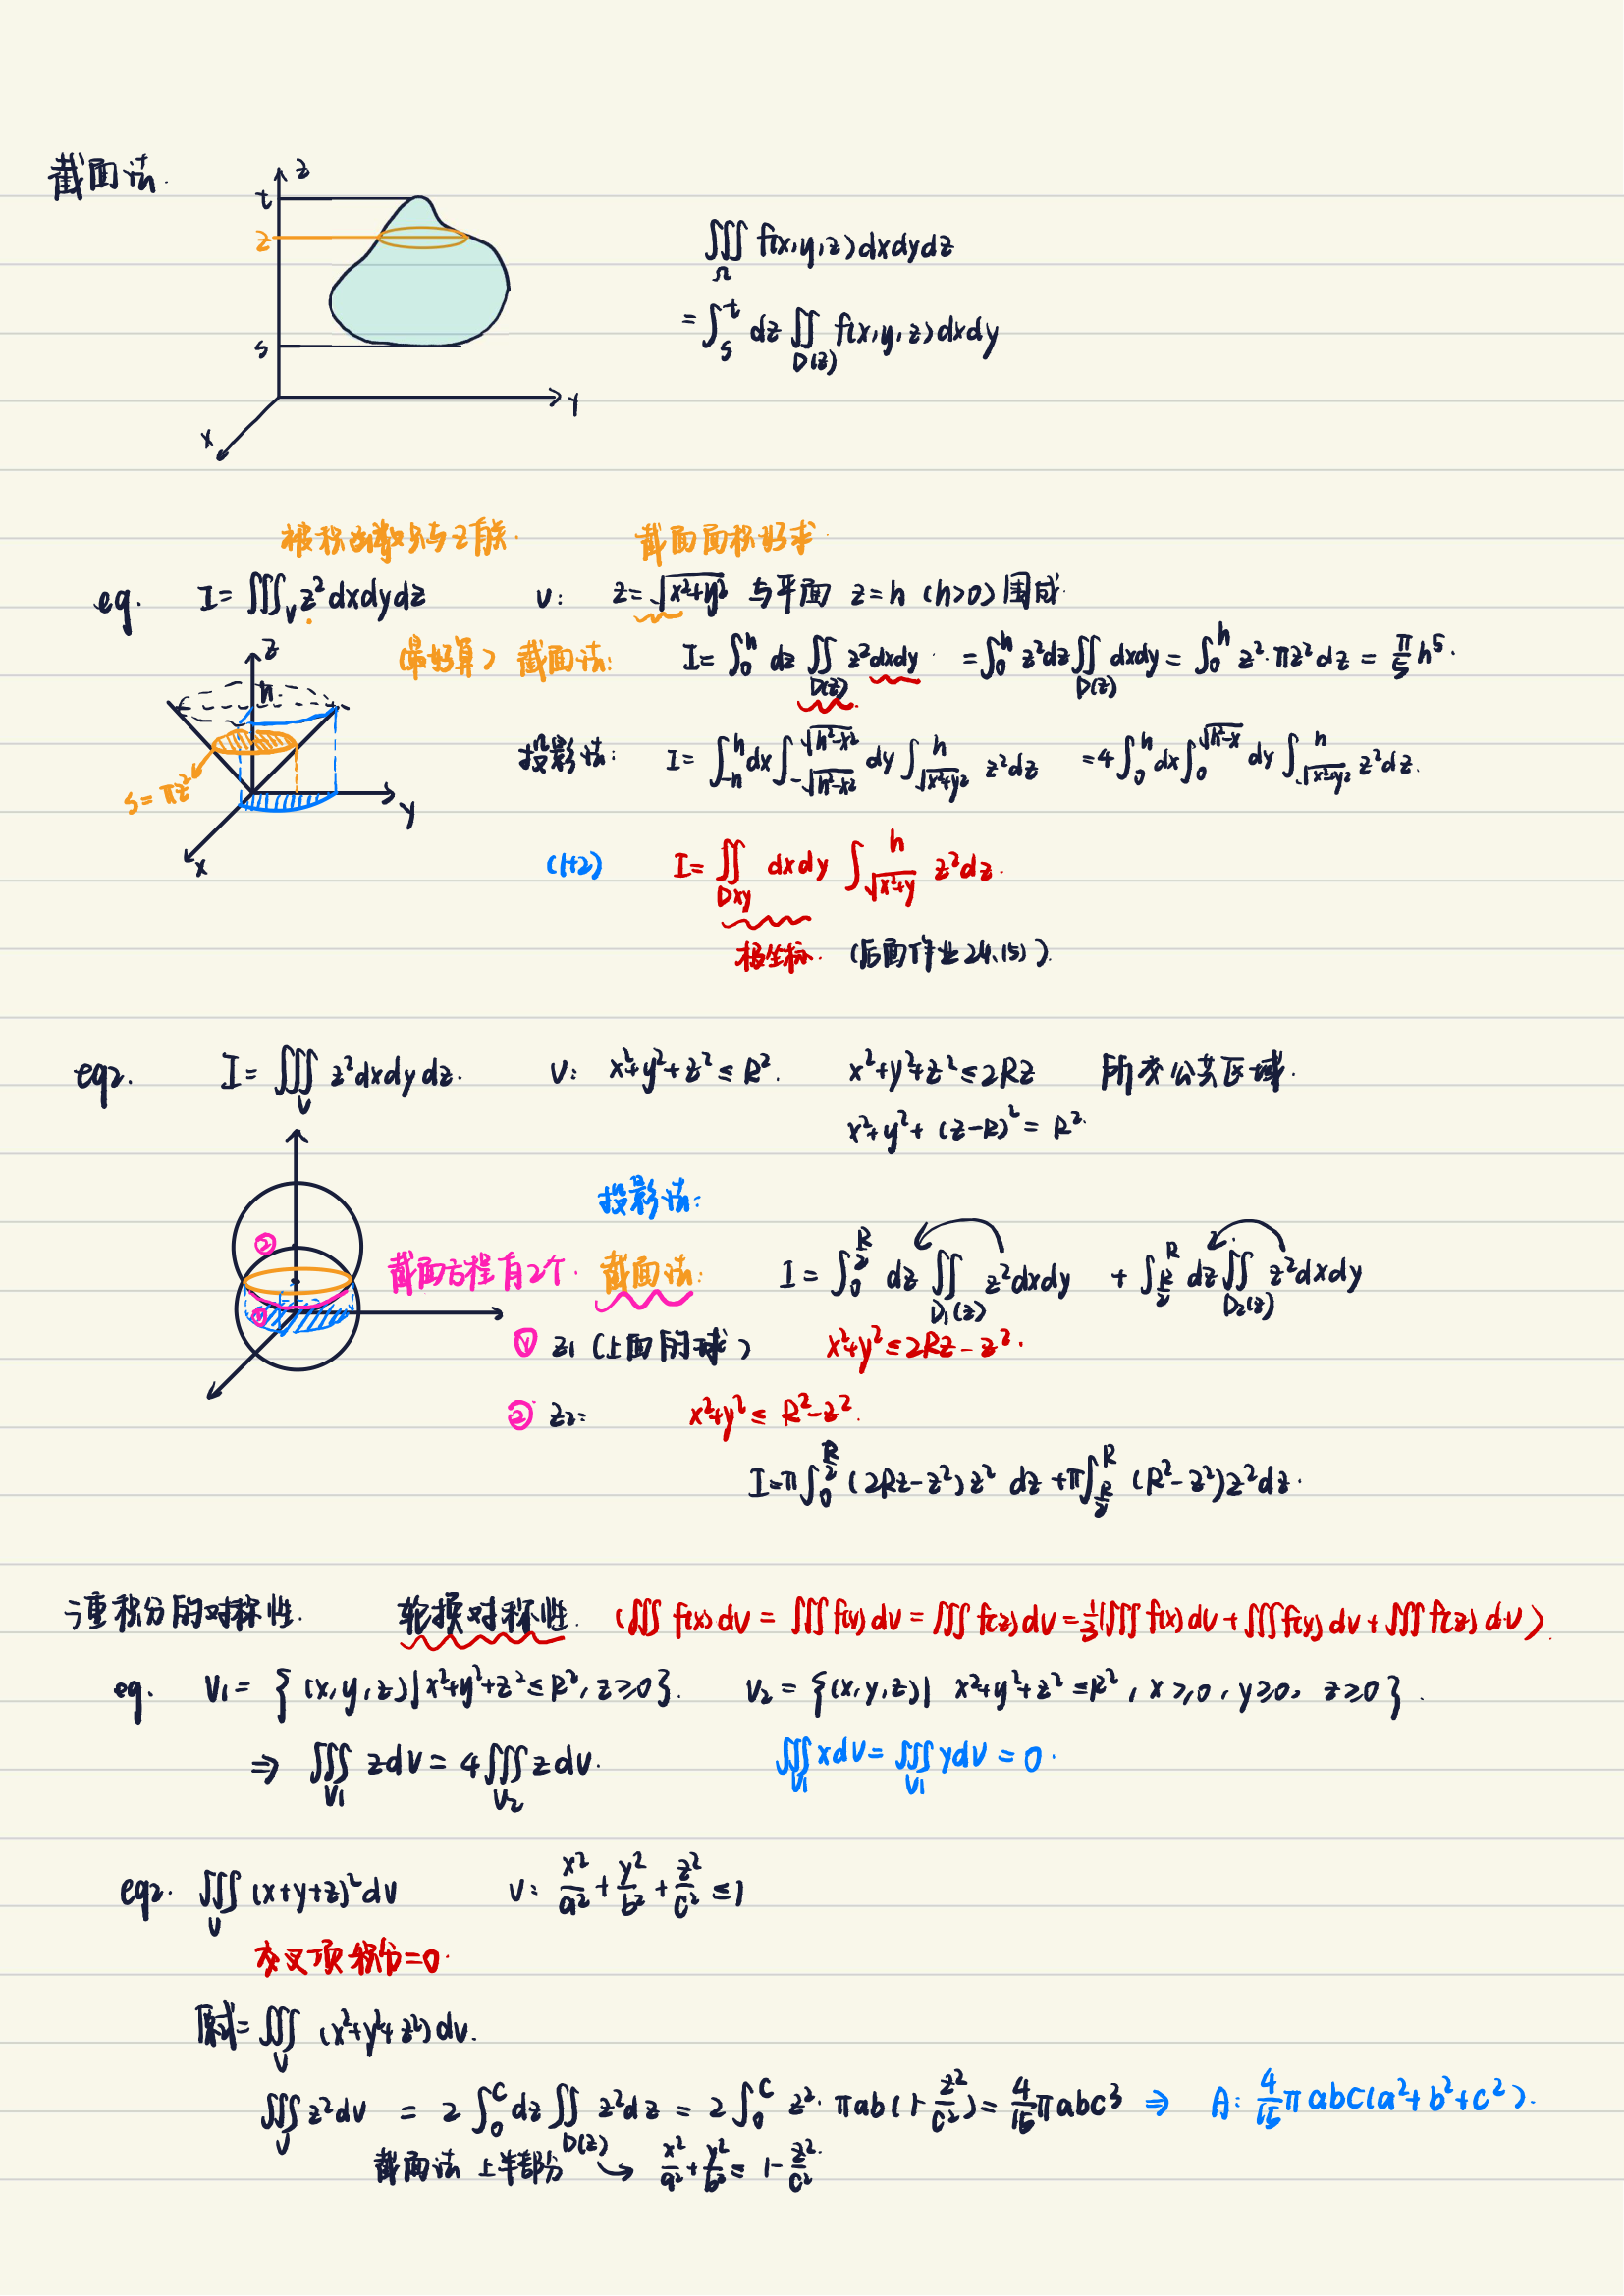 截面法.
z
t
z
s
y
x
∭_Ω f(x,y,z)dxdydz
= ∫_s^t dz ∬_{D(z)} f(x,y,z)dxdy
被积函数只与z有关. 截面面积好求.
eg. I=∭_V z²dxdydz V: z=√(x²+y²) 与平面 z=h (h>0) 围成.
(最好算) 截面法: I=∫_0^h dz ∬_{D(z)} z²dxdy. =∫_0^h z²dz∬_{D(z)} dxdy = ∫_0^h z²·πz²dz = π/5 h⁵.
z
h
s=πz²
y
x
投影法: I=∫_{-h}^h dx∫_{-√(h²-x²)}^{√(h²-x²)} dy∫_{√(x²+y²)}^h z²dz =4∫_0^h dx∫_0^{√(h²-x)} dy∫_{√(x²+y²)}^h z²dz.
(1+2) I=∬_{Dxy} dxdy ∫_{√(x²+y)}^h z²dz.
极坐标. (后面作业24.(5))
eg2. I=∭_V z²dxdydz. V: x²+y²+z²≤R². x²+y²+z²≤2Rz 所交公共区域.
x²+y²+(z-R)²=R².
②
①
投影法:
截面方程有2个. 截面法: I=∫_0^{R/2} dz∬_{D₁(z)} z²dxdy + ∫_{R/2}^R dz∬_{D₂(z)} z²dxdy
① z₁ (上面的球) x²+y²≤2Rz-z².
② z₂: x²+y²≤R²-z².
I=π∫_0^{R/2}(2Rz-z²)z² dz+π∫_{R/2}^R (R²-z²)z²dz.
三重积分的对称性. 轮换对称性. (∭f(x)dV=∭f(y)dV=∭f(z)dV=1/3(∭f(x)dV+∭f(y)dV+∭f(z)dV)).
eg. V₁={(x,y,z)|x²+y²+z²≤R²,z≥0}. V₂={(x,y,z)| x²+y²+z²≤R²,x≥0,y≥0,z≥0}.
⇒ ∭_{V₁} zdV=4∭_{V₂} zdV. ∭_{V₁} xdV=∭_{V₁} ydV=0.
eg2. ∭_V (x+y+z)²dV V: x²/a²+y²/b²+z²/c²≤1
交叉项积分=0.
原式=∭_V (x²+y²+z²)dV.
∭_V z²dV = 2∫_0^c dz∬_{D(z)} z²dz = 2∫_0^c z²·πab(1-z²/c²)=4/15 πabc³ ⇒ A: 4/15 πabc(a²+b²+c²).
截面法 上半部分 → x²/a²+y²/b²≤1-z²/c².